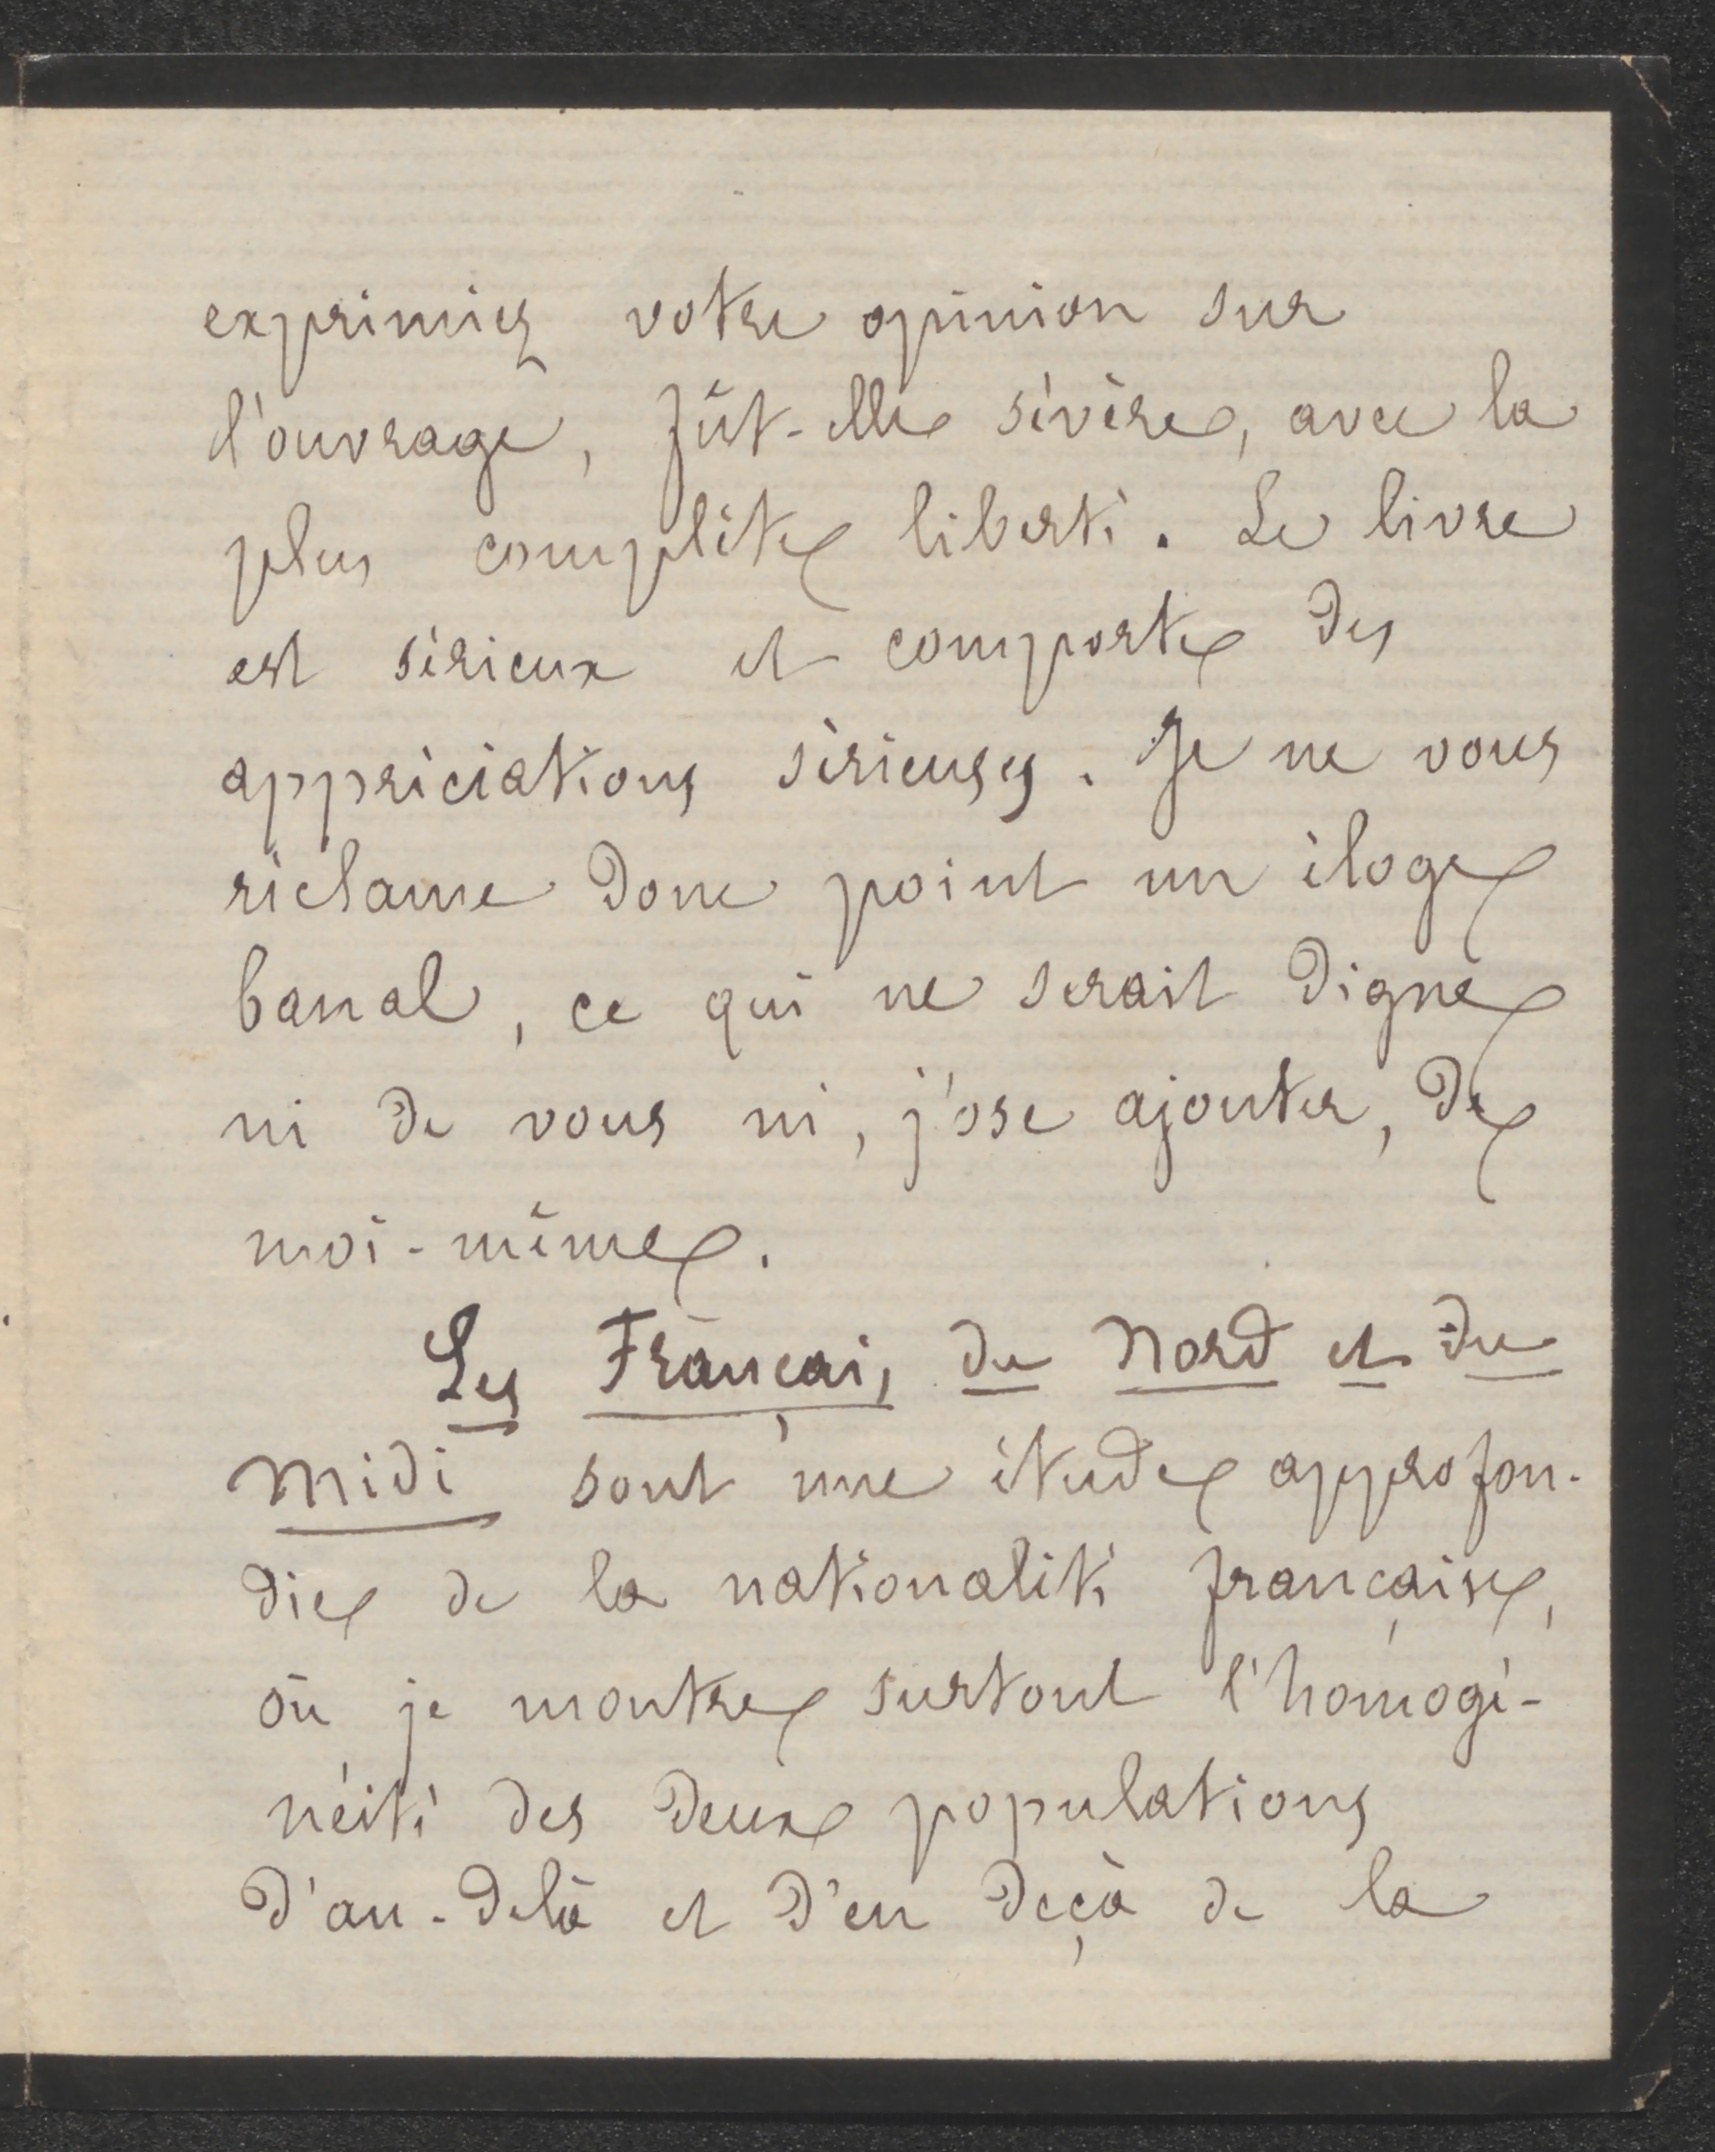 exprimiez votre opinion sur
l'ouvrage, fût-elle sévère, avec la
plus complète liberté. Le livre
est sérieux et comporte des
appréciations sérieuses. Je ne vous
réclame donc point un éloge
banal, ce qui ne serait digne
ni de vous ni, j'ose ajouter, de
moi-même.
Les Français du Nord et du
Midi sont une étude approfon-
die de la nationalité française,
où je montre surtout l'homogé-
néité des deux populations
d'au-delà et d'en deçà de la